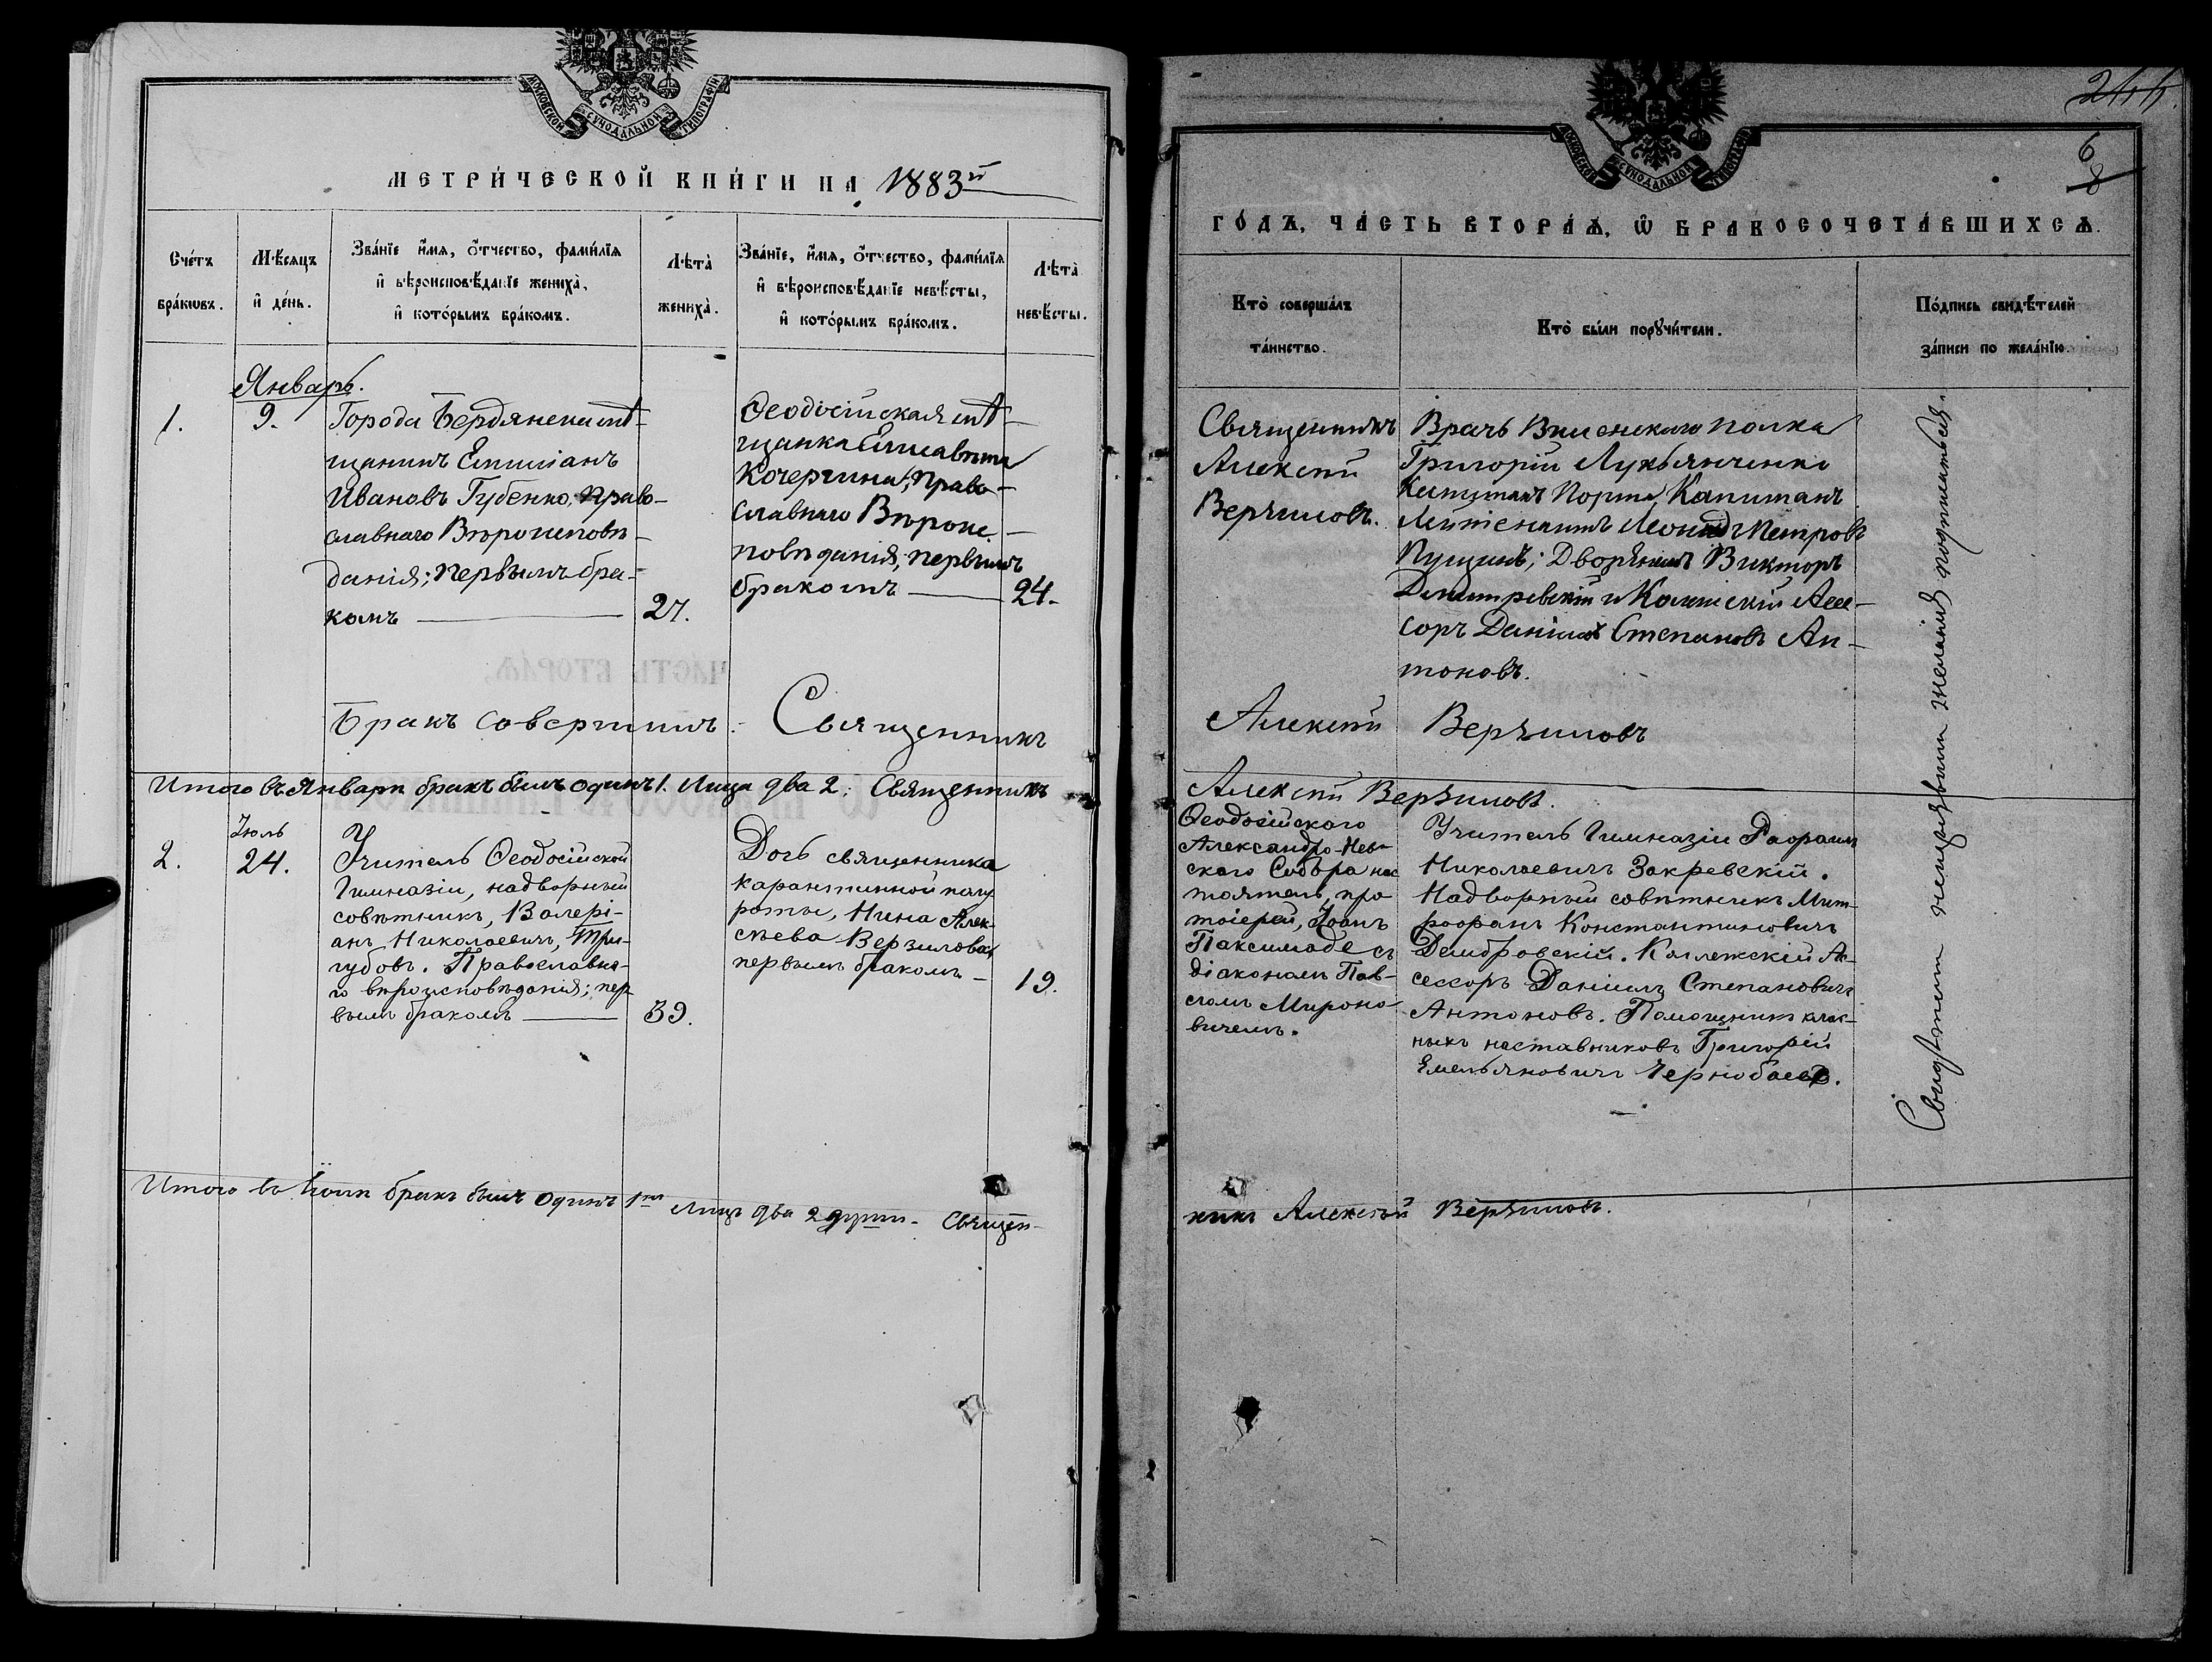 МОСКОВСКОЙ СѴНОДАЛЬНОЙ ТИПОГРАФІИ
МЕТРИ́ЧЕСКОЙ КНИ́ГИ НА 1883й
Сче́тъ
бра́кѡвъ.
Мѣ́сяцъ
и҆ де́нь.
Зва́нїе и҆́мѧ, ѻ҆́тчество, фами́лїѧ
и҆ вѣроисповѣ́данїе жениха̀,
и҆ кото́рымъ бра́комъ.
Лѣта̀
жениха̀.
Зва́нїе, и҆́мѧ, ѻ҆́тчество, фами́лїѧ
и҆ вѣроисповѣ́данїе невѣ́сты,
и҆ кото́рымъ бра́комъ.
Лѣта̀
невѣ́сты.
Январь.
1.
9.
Города Бердянска мѣ-
щанинъ Емиліанъ
Ивановъ Губенко, право-
славнаго Вѣроисповѣ-
данія; первымъ бра-
комъ — 27.
Ѳеодосійская мѣ-
щанка Елисавета
Кочергина, право-
славнаго Вѣроис-
повѣданія, первымъ
бракомъ — 24.
Бракъ совершилъ: Священникъ
Итого въ Январѣ бракъ былъ одинъ 1. Лица два 2: Священникъ
Іюль
2.
24.
Учитель Ѳеодосійской
Гимназіи, надворный
совѣтникъ, Валері-
анъ Николаевичъ, Три-
губовъ. Православна-
го вѣроисповѣданія; пер
вымъ бракомъ — 39.
Дочь священника
карантинной полу
роты, Нина Алек-
сѣева Верзилова,
первымъ бракомъ — 19.
Итого въ Іюлѣ бракъ былъ одинъ 1 Лицъ два 2 Священ-
МОСКОВСКОЙ СѴНОДАЛЬНОЙ ТИПОГРАФІИ
244.
6
8
ГО́ДЪ, ЧА́СТЬ ВТОРА́Ѧ, Ѽ БРАКОСОЧЕТА́ВШИХСѦ.
Кто̀ соверша́лъ
та́инство.
Кто̀ бы́ли порꙋчи́тели.
По́дпись свидѣ́телей
за́писи по жела́нїю.
Священникъ
Алексѣй
Верзиловъ.
Врачъ Виленскаго полка
Григорій Лукьянченко
Капитанъ Порта, Капитанъ
Лейтенантъ Леонидъ Петровъ
Пущинъ; Дворянинъ Викторъ
Димитревскій и Колежскій Ассе-
соръ Даніилъ Степановъ Ан-
тоновъ.
Алексѣй Верзиловъ
Алексѣй Верзиловъ.
Ѳеодосійскаго
Александро-Нев-
скаго Собора нас
тоятель, про
тоіерей, Іоанъ
Паксимаде съ
діакономъ Пав-
ломъ Мироно-
вичемъ.
Учитель Гимназіи
Николаевичъ Закревскій.
Надворный совѣтникъ Мит-
рофанъ Константиновичъ
Домбровскій. Коллежскій Ас-
сессоръ Даніилъ Степановичъ
Антоновъ. Помощникъ клас-
ныхъ наставниковъ Григорій
Емельяновичъ Чернобаевъ.
Свидѣтели неизъявили желанія подписаться.
никъ Алексѣй Верзиловъ.